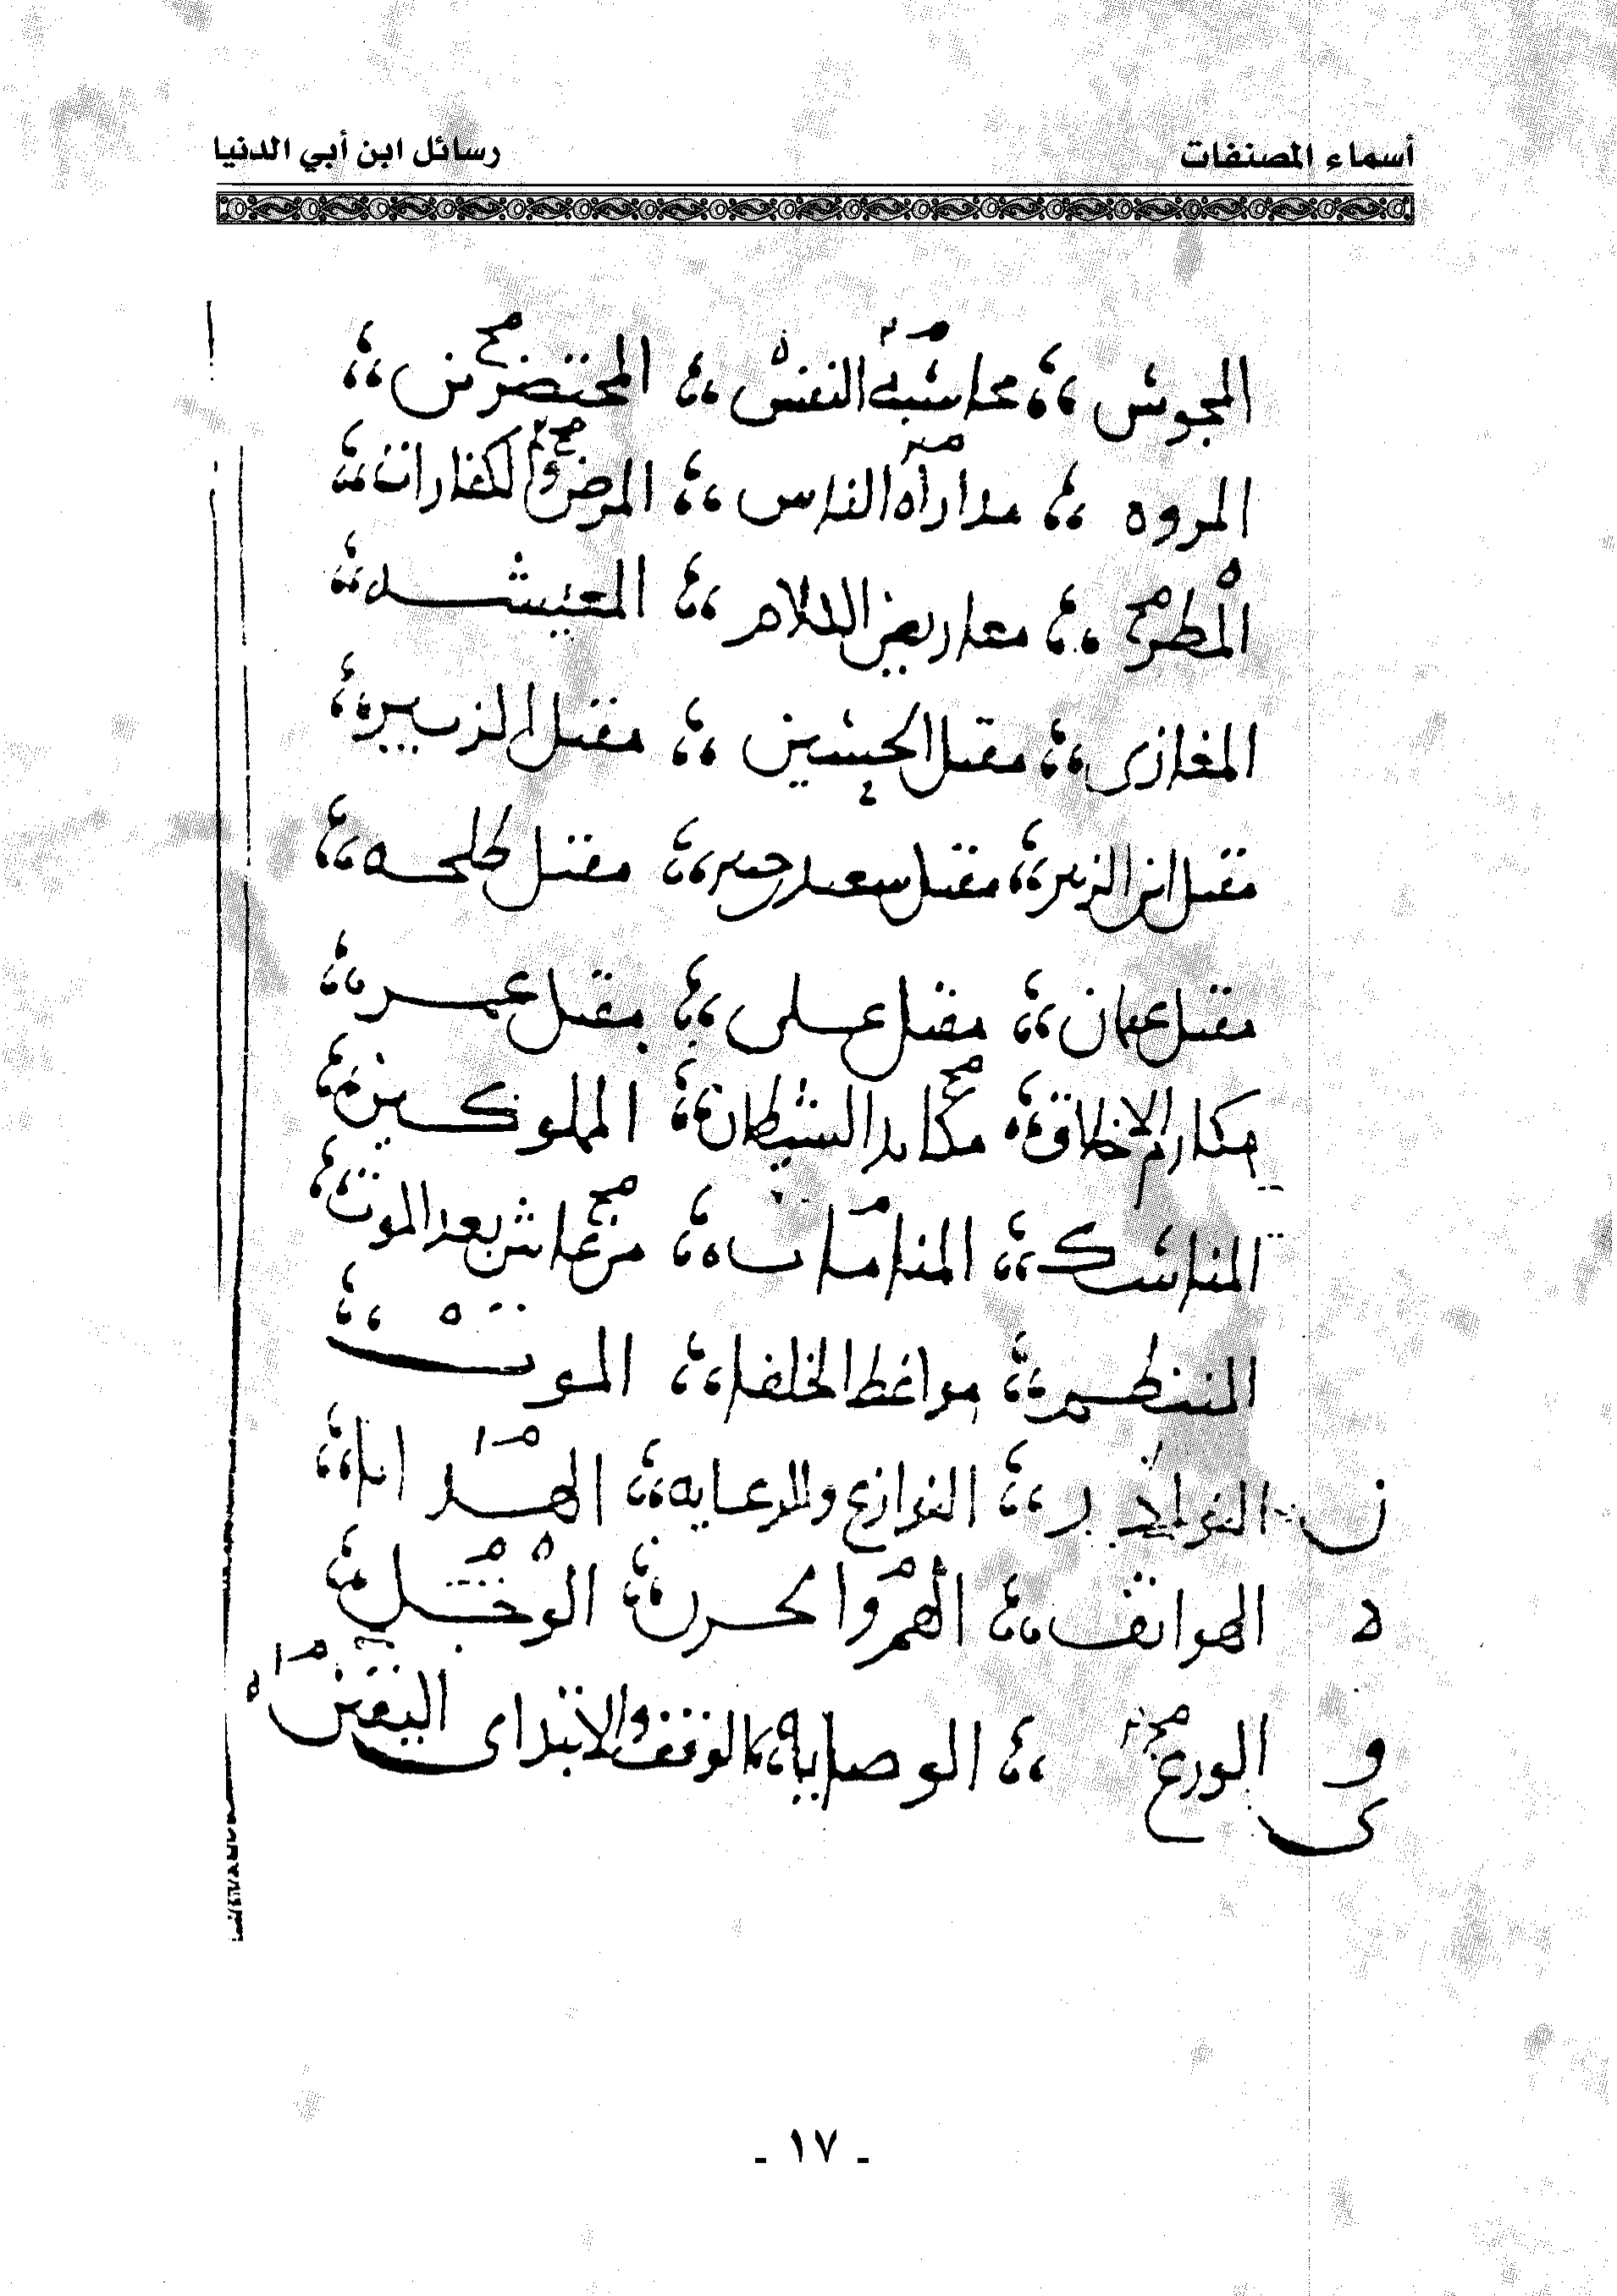 أسماء المصنفات رسائل ابن أبي الدنيا
المجوس محاسبة النفس المحتضرين
المروه مداراه الناس المرض والكفارات
المطر معاريض الكلام المعيشه
المغازى مقتل الحسين مقتل الزبير
مقتل ابن الزبير مقتل سعيد بن جبير مقتل طلحه
مقتل عثمان مقتل على مقتل عمر
مكارم الاخلاق مكايد الشيطان المملوكين
المناسك المنامات من عاش بعد الموت
المنتظم مواعظ الخلفا الموت
ن النوادر النوازع والرعايه الهدايا
ه الهواتف الهم والحزن الوجل
و الورع الوصايا الوقف والابتداى اليقين
ى
- ١٧ -